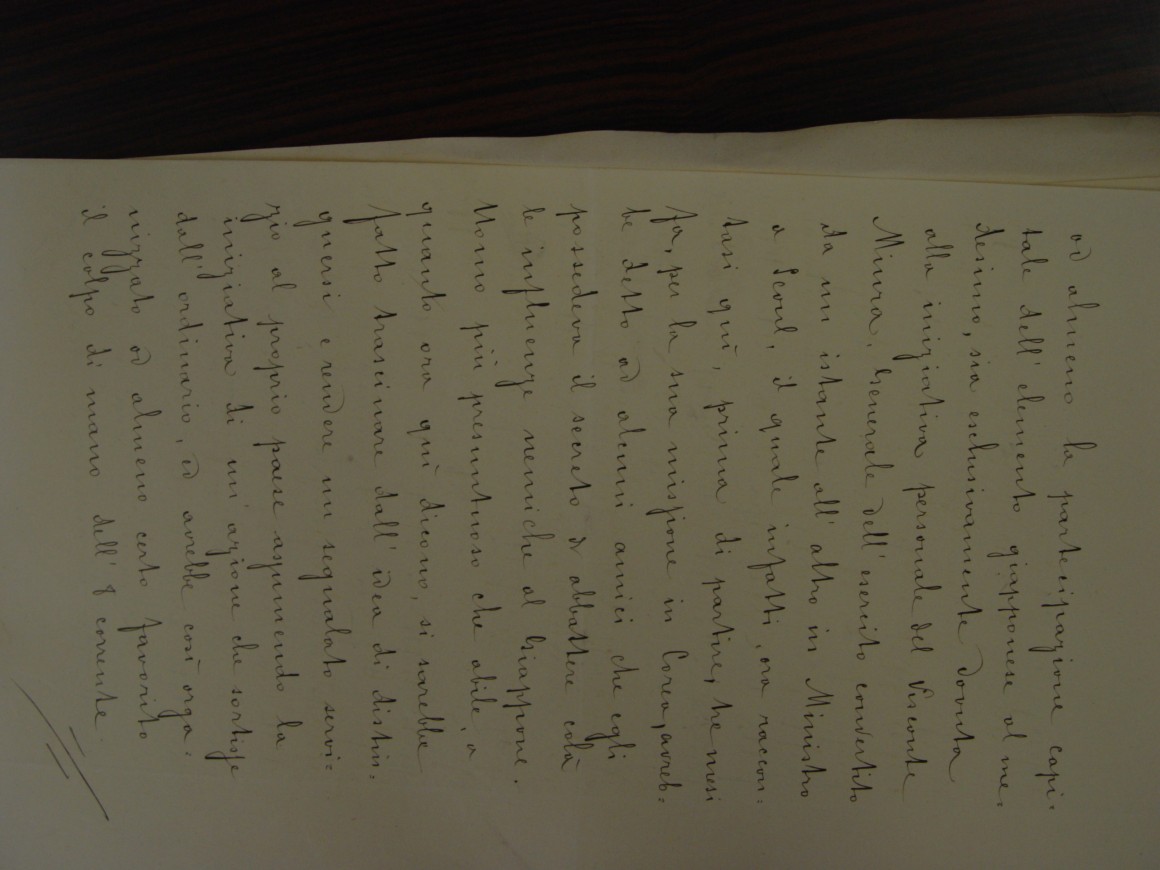 od almeno la partecipazione capi=
tale dell' elemento giapponese al me=
desimo, sia esclusivamente dovuta
alla iniziativa personale del Visconte
Miura, Generale dell' esercito convertito
da un istante all' altro in Ministro
a Seoul, il quale infatti, ora raccon=
tasi quì, prima di partire, tre mesi
fa, per la sua missione in Corea, avreb=
be detto ad alcuni amici che egli
possedeva il secreto di abbattere colà
le influenze nemiche al Giappone.
Uomo più presuntuoso che abile, a
quanto ora quì dicono, si sarebbe
fatto trascinare dall' idea di distin=
guersi e rendere un segnalato servi=
zio al proprio paese assumendo la
iniziativa di un' azione che sortisse
dall' ordinario, ed avrebbe così orga=
nizzato od almeno certo favorito
il colpo di mano dell' 8 corrente